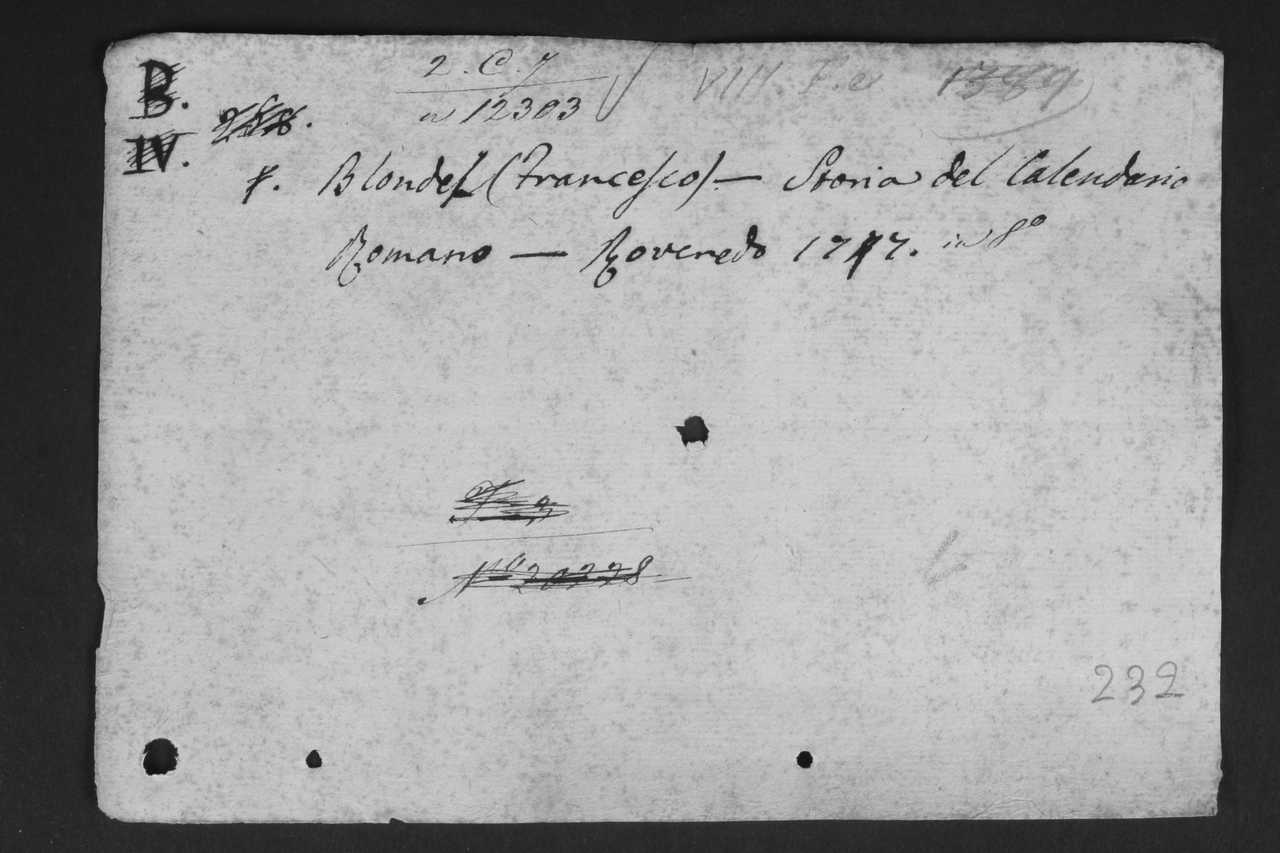 B.
IV.
2. C. 7
n 12303
VIII.
1389
f. Blondel (Francesco) — Storia del Calendario
Romano — Roveredo 17 7. in 8º
Nº 20328
232